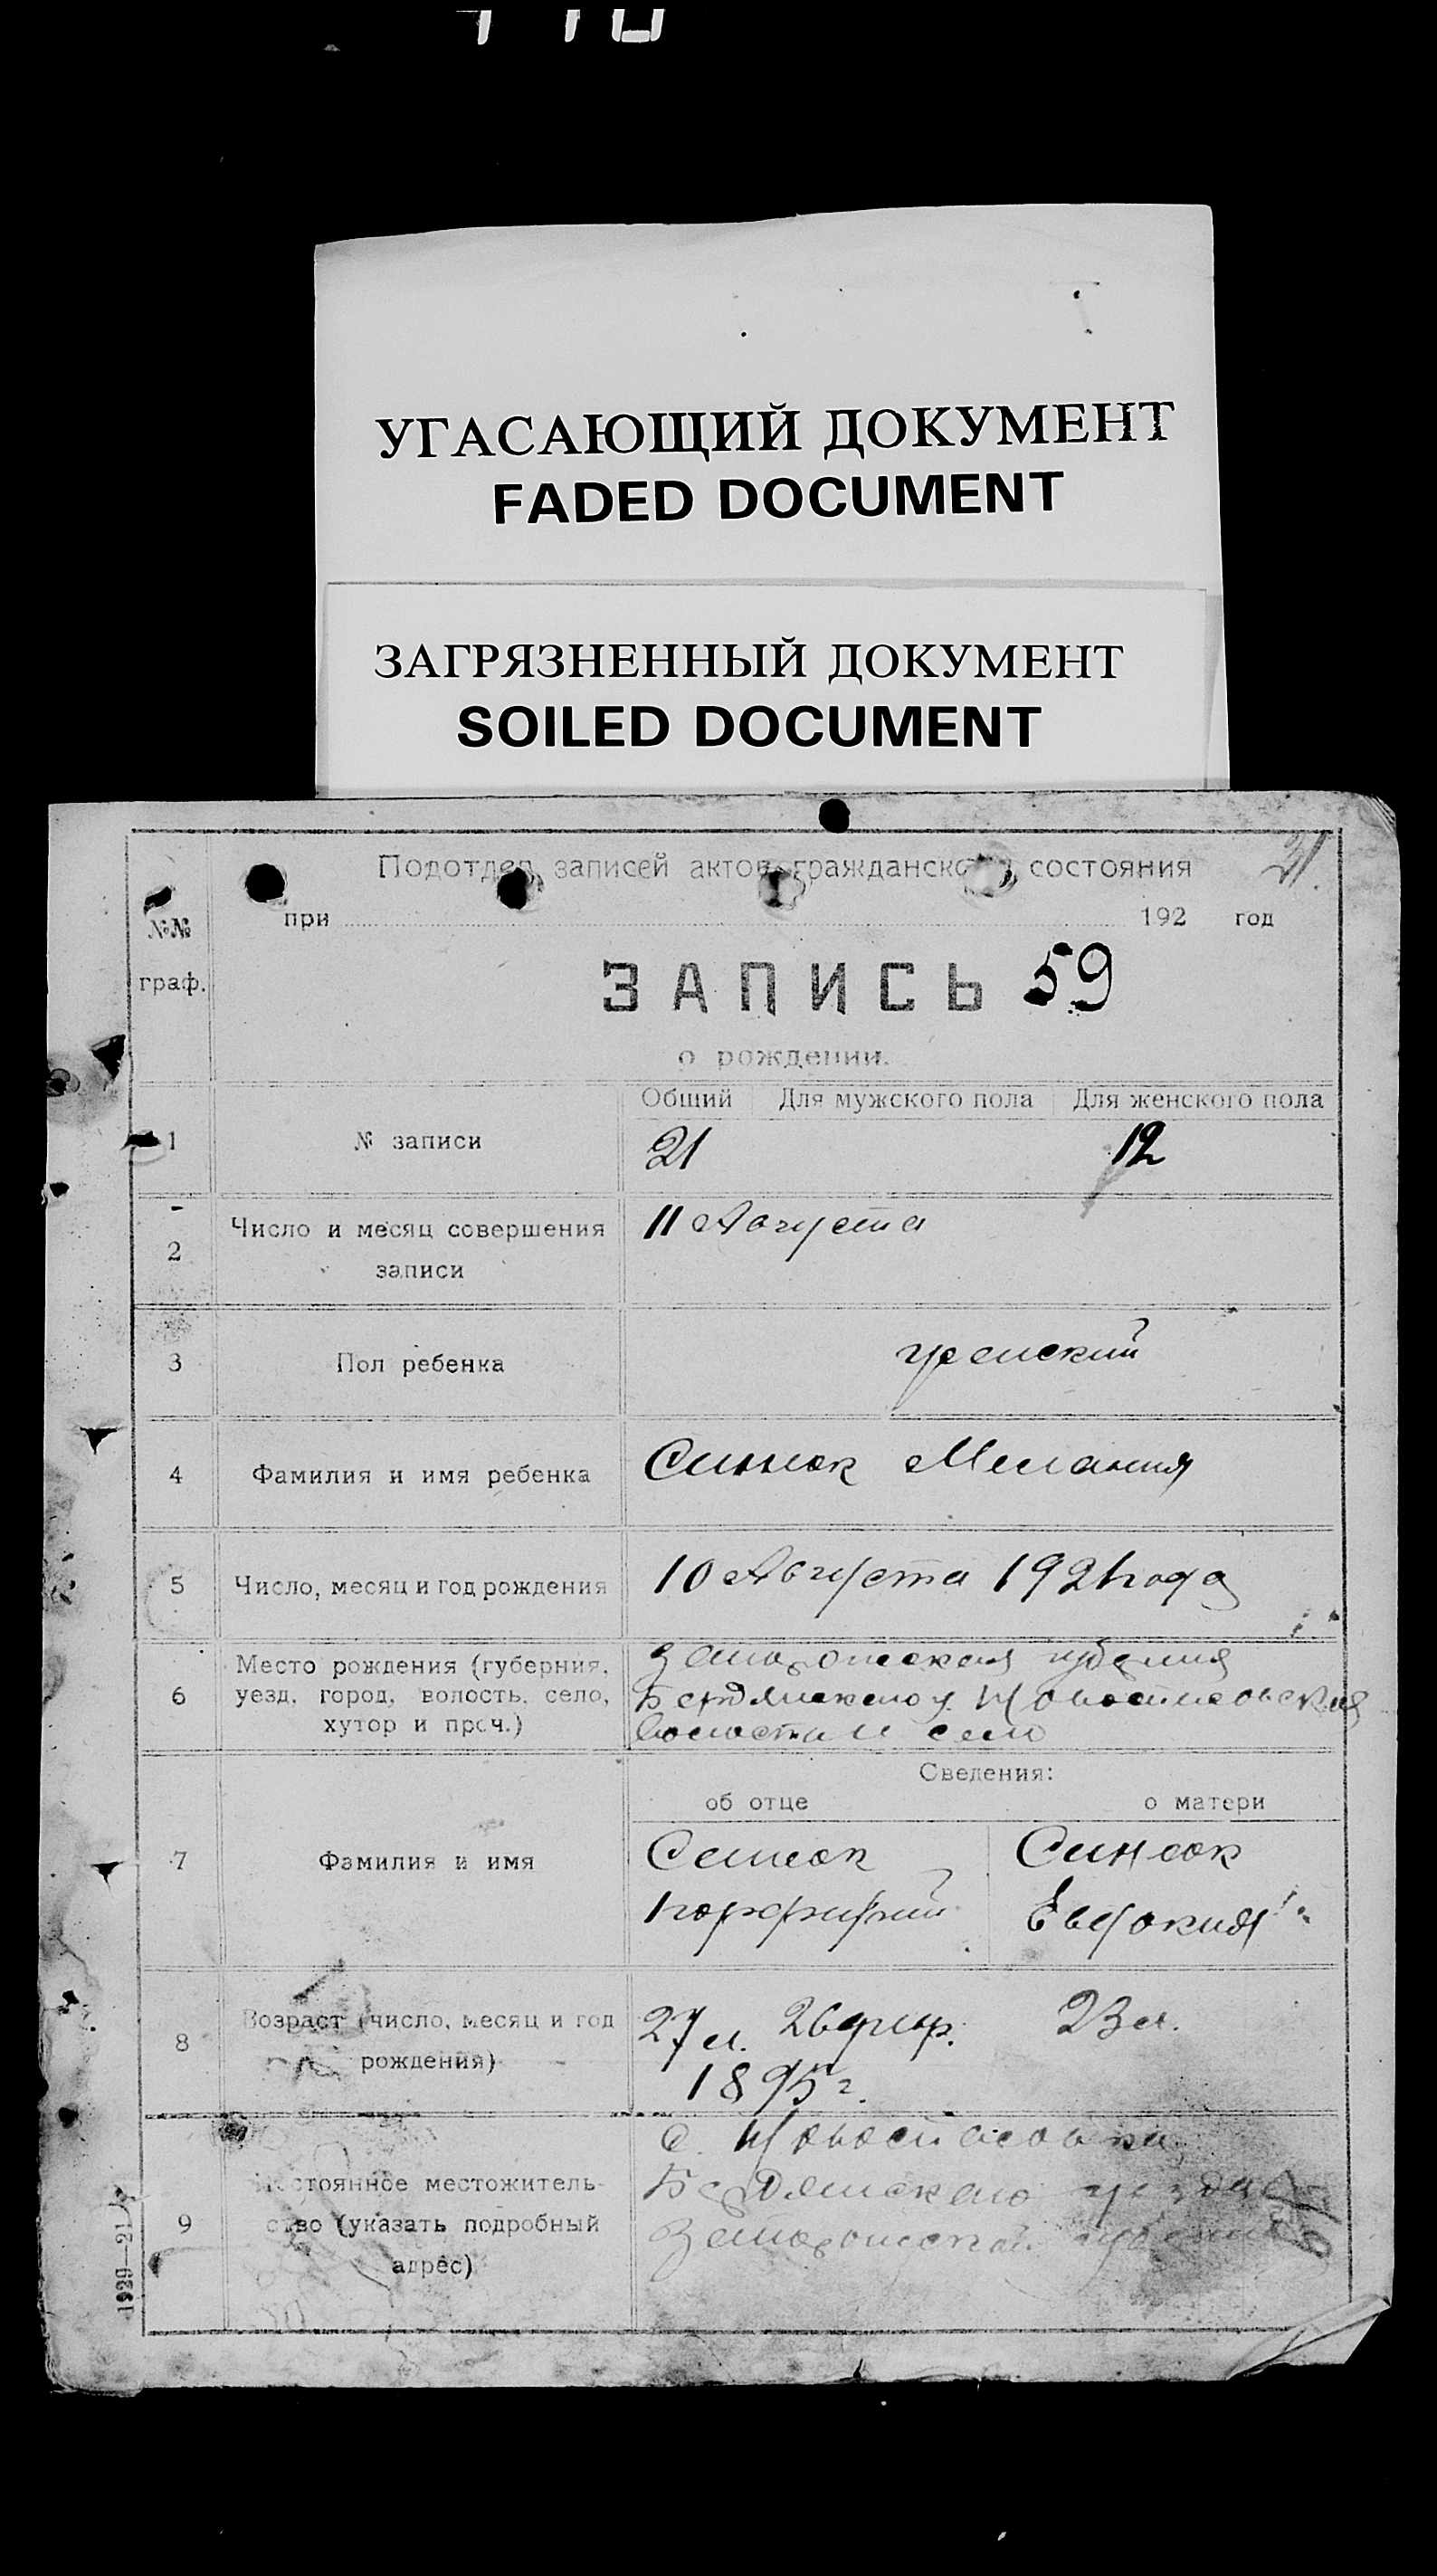 УГАСАЮЩИЙ ДОКУМЕНТ
FADED DOCUMENT
ЗАГРЯЗНЕННЫЙ ДОКУМЕНТ
SOILED DOCUMENT
21.
Подотдел записей актов гражданского состояния
при 192 год
№№
граф.
ЗАПИСЬ 59
о рождении.
Общий Для мужского пола Для женского пола
1 № записи 21 12
2 Число и месяц совершения
записи
11 Августа
3 Пол ребенка женский
4 Фамилия и имя ребенка Синюк Мелания
5 Число, месяц и год рождения 10 Августа 1921 года
6 Место рождения (губерния,
уезд, город, волость, село,
хутор и проч.)
Запорожская губерния
Бердянского у. Новоспасовская
волости и село
Сведения:
об отце о матери
7 Фамилия и имя
Синюк Синюк
Порфирий Евдокия
8 Возраст (число, месяц и год
рождения)
27 л. 26 23 л.
1895 г.
9 Постоянное местожитель-
ство (указать подробный
адрес)
с. Новоспасовки
Бердянского уезда
Запорожской губернии
1929—21